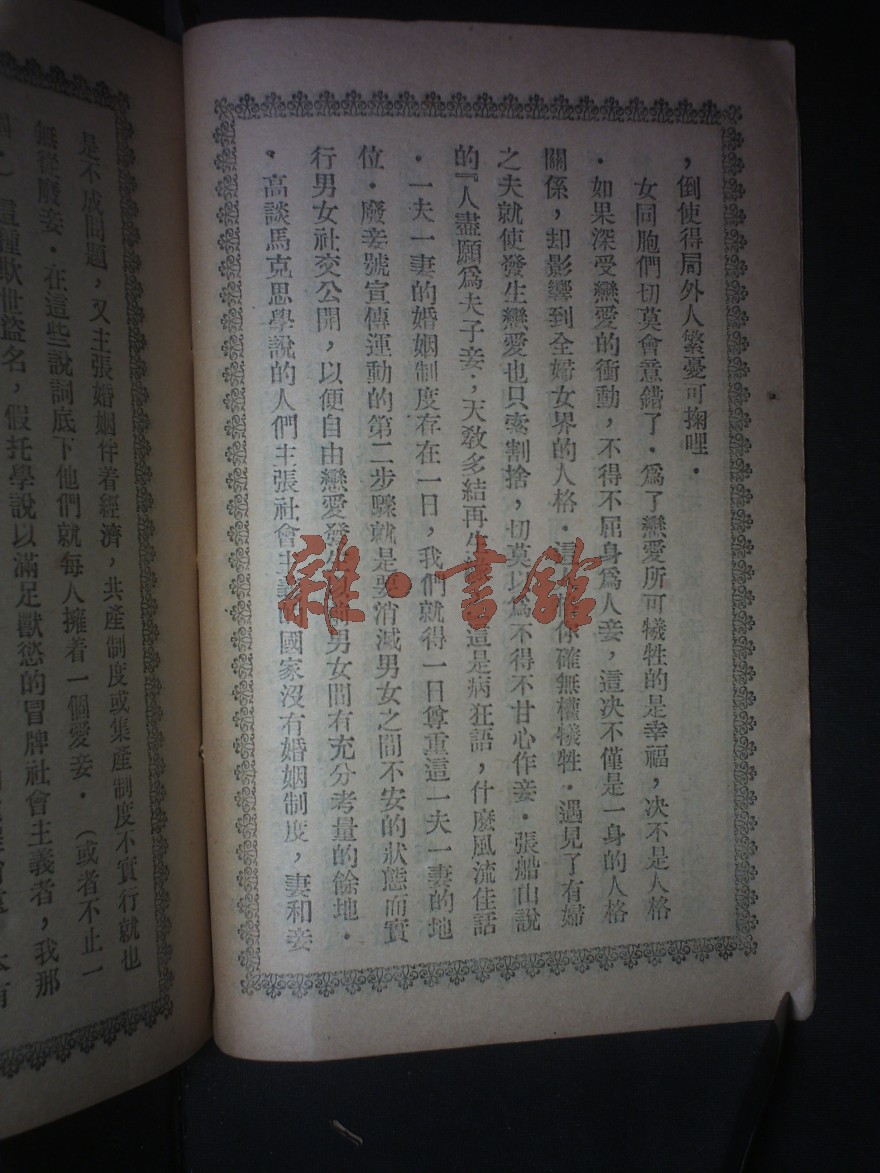 ，倒使得局外人繁憂可掬哩．
女同胞們切莫會意錯了．爲了戀愛所可犧牲的是幸福，决不是人格
．如果深受戀愛的衝動，不得不屈身爲人妾，這决不僅是一身的人格
關係，却影響到全婦女界的人格．這你確無權犧牲．遇見了有婦
之夫就使發生戀愛也只索割捨，切莫以爲不得不甘心作妾．張船山說
的『人盡願爲夫子妾；天敎多結再生這是病狂語，什麽風流佳話
．一夫一妻的婚姻制度存在一日，我們就得一日尊重這一夫一妻的地
位．廢妾號宣傳運動的第二步驟就是要消滅男女之間不安的狀態而實
行男女社交公開，以便自由戀愛發生男女間有充分考量的餘地．
．高談馬克思學說的人們主張社會主義國家沒有婚姻制度，妻和妾
是不成問題，又主張婚姻伴着經濟，共產制度或集產制度不實行就也
無從廢妾．在這些說詞底下他們就每人擁着一個愛妾．（或者不止一
這種欺世盜名，假托學說以滿足獸慾的冒牌社會主義者，我那
雜·書館